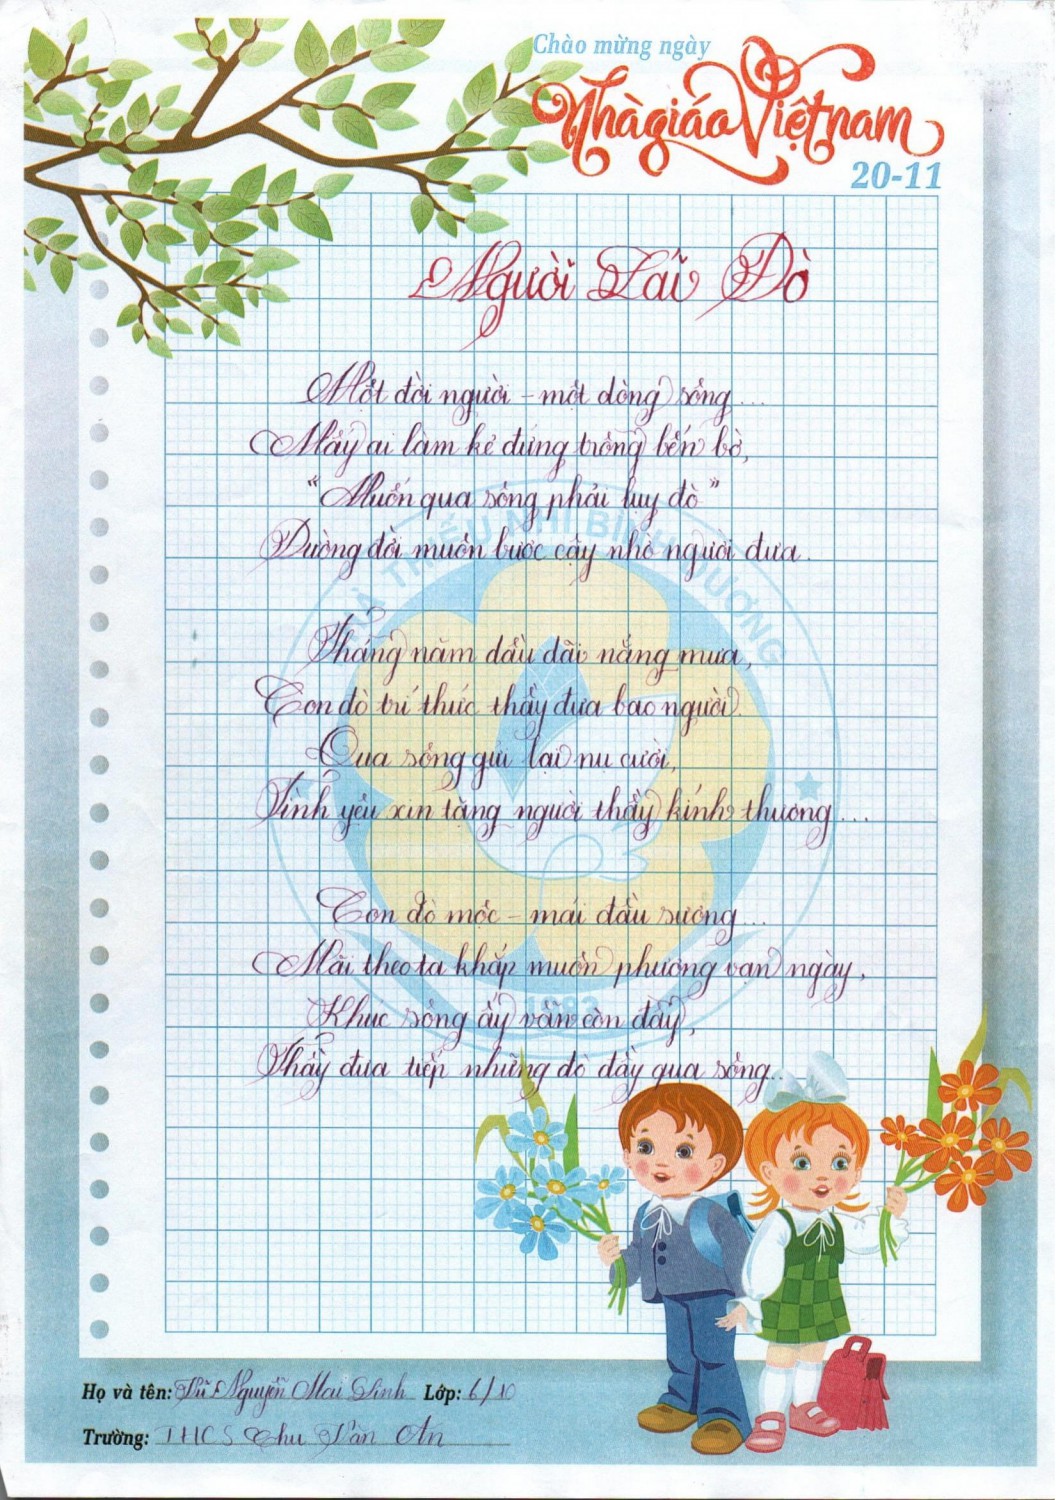 Chào mừng ngày
Nhà giáo Việt nam
20-11
Người Lái Đò
Một đời người - một dòng sông...
Mấy ai làm kẻ đứng trông bến bờ,
"Muốn qua sông phải lụy đò"
Đường đời muôn bước cậy nhờ người đưa.
Tháng năm dầu dãi nắng mưa,
Con đò trí thức thầy đưa bao người.
Qua sông gửi lại nụ cười,
Tình yêu xin tặng người thầy kính thương...
Con đò mộc - mái đầu sương...
Mãi theo ta khắp muôn phương vạn ngày,
Khúc sông ấy vẫn còn đây,
Thầy đưa tiếp những đò đầy qua sông...
THIẾU NHI BÌNH DƯƠNG
Họ và tên: Vũ Nguyễn Mai Linh Lớp: 6/10
Trường: THCS Chu Văn An